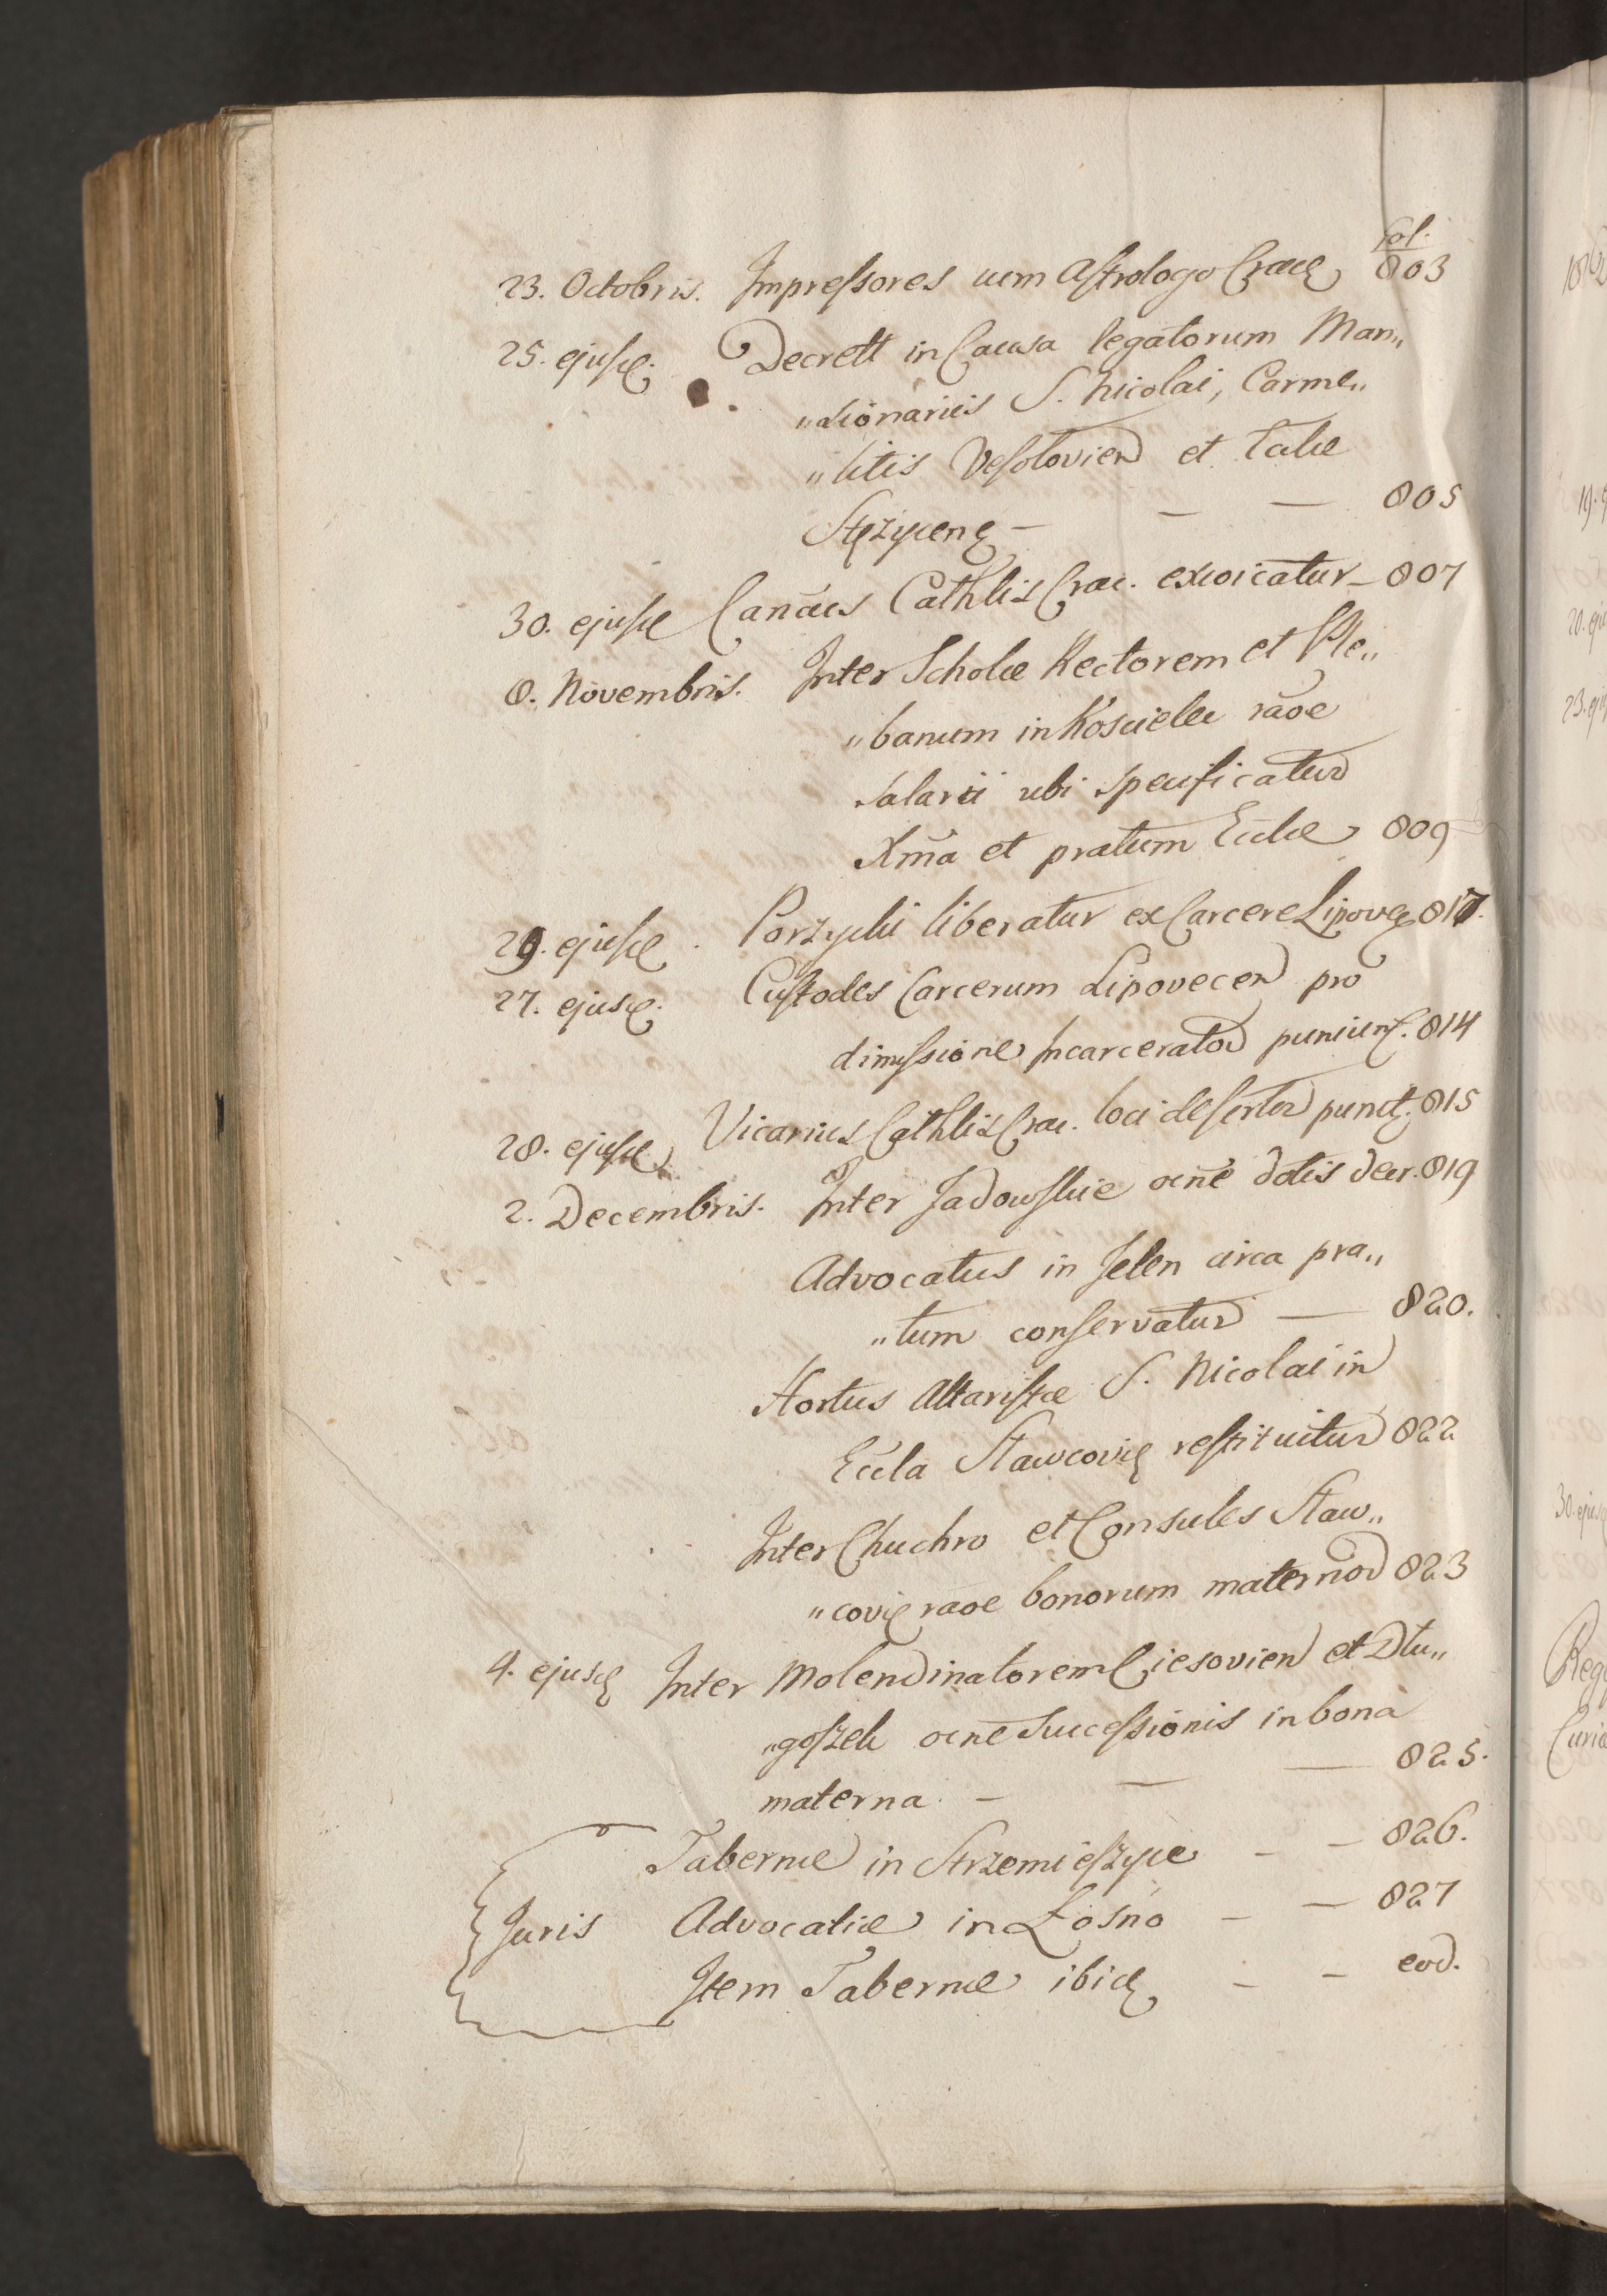 fol.
23. Octobris. Impressores cum Astrologo Crac 803
25. ejusd. Decrett in Causa legatorum Man„
„sionariis S. Nicolai, Carme„
„litis Vesolovien et Ecclæ
Stężycen — — — 805
30. ejusd Canōcus Cathlis Crac. exvoicatur — 807
8. Novembris. Inter Scholæ Rectorem et Ple„
„banum in Kościelec raōe
Salarii ubi specificatur
Xma et pratum Eccłæ 809
29. ejusd. Porzycki liberatur ex Carcere Lipovec 817.
27. ejusd. Custodes Carcerum Lipovecen pro
dimissione Incarcerator puniunt. 814
28. ejusd Vicarius Cathlis Crac. loci desertor punit. 815
2. Decembris. Inter Jadowskie ocnē dotis decr. 819
Advocatus in Jelen circa pra„
„tum conservatur — 820.
Hortus Altaristæ S. Nicolai in
Eccla Slawcovie restituitur 822
Inter Chuchro et Consules Slaw„
„covie raoe bonorum maternor 823
4. ejusd Inter Molendinatorem Ciesovien et Dlu„
„goszek ocnē Successionis in bona
materna. — — — 825.
Tabernæ in Strzemieszyce — — 826.
Juris Advocatiæ in Łosno — — 827
Item Tabernæ ibid — — eod.